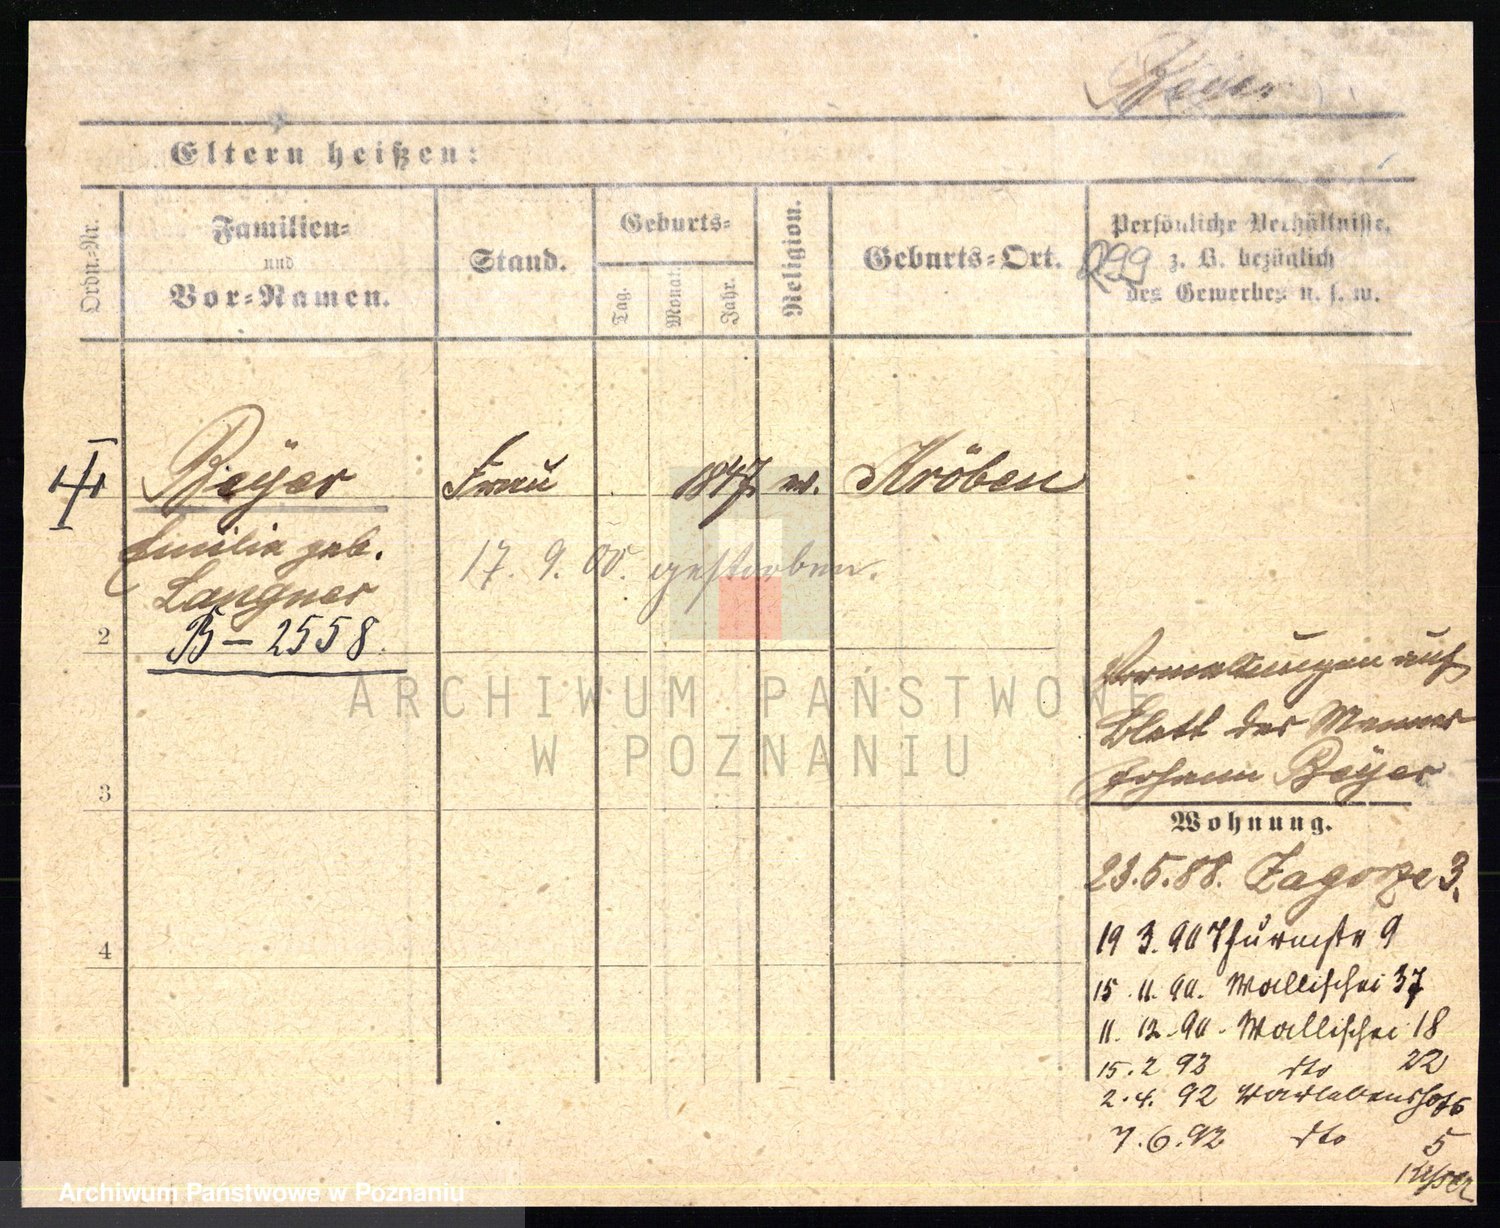 Beyer
Eltern heißen:
Ordn.-Nr.
Familien-
und
Vor-Namen.
Stand.
Geburts-
Tag.
Monat.
Jahr.
Religion.
Geburts-Ort.
Persönliche Verhältnisse,
z. B. bezüglich
des Gewerbes u. s. w.
299
Beÿer
Frau
1847
Kröben
Emilie geb.
Langner
17. 9. 00. gestorben.
2
B-2558.
auf
Blatt des Mannes
Johann Beÿer
3
Wohnung.
23.5.88. Zagorze 3.
4
19 3. 90 9
15. 11. 90. Wallischei 37
11. 12. 90. Wallischei 18
15. 2 92 dto 22
2. 4. 92
7. 6. 92 dto 5
ARCHIWUM PAŃSTWOWE
W POZNANIU
Archiwum Państwowe w Poznaniu